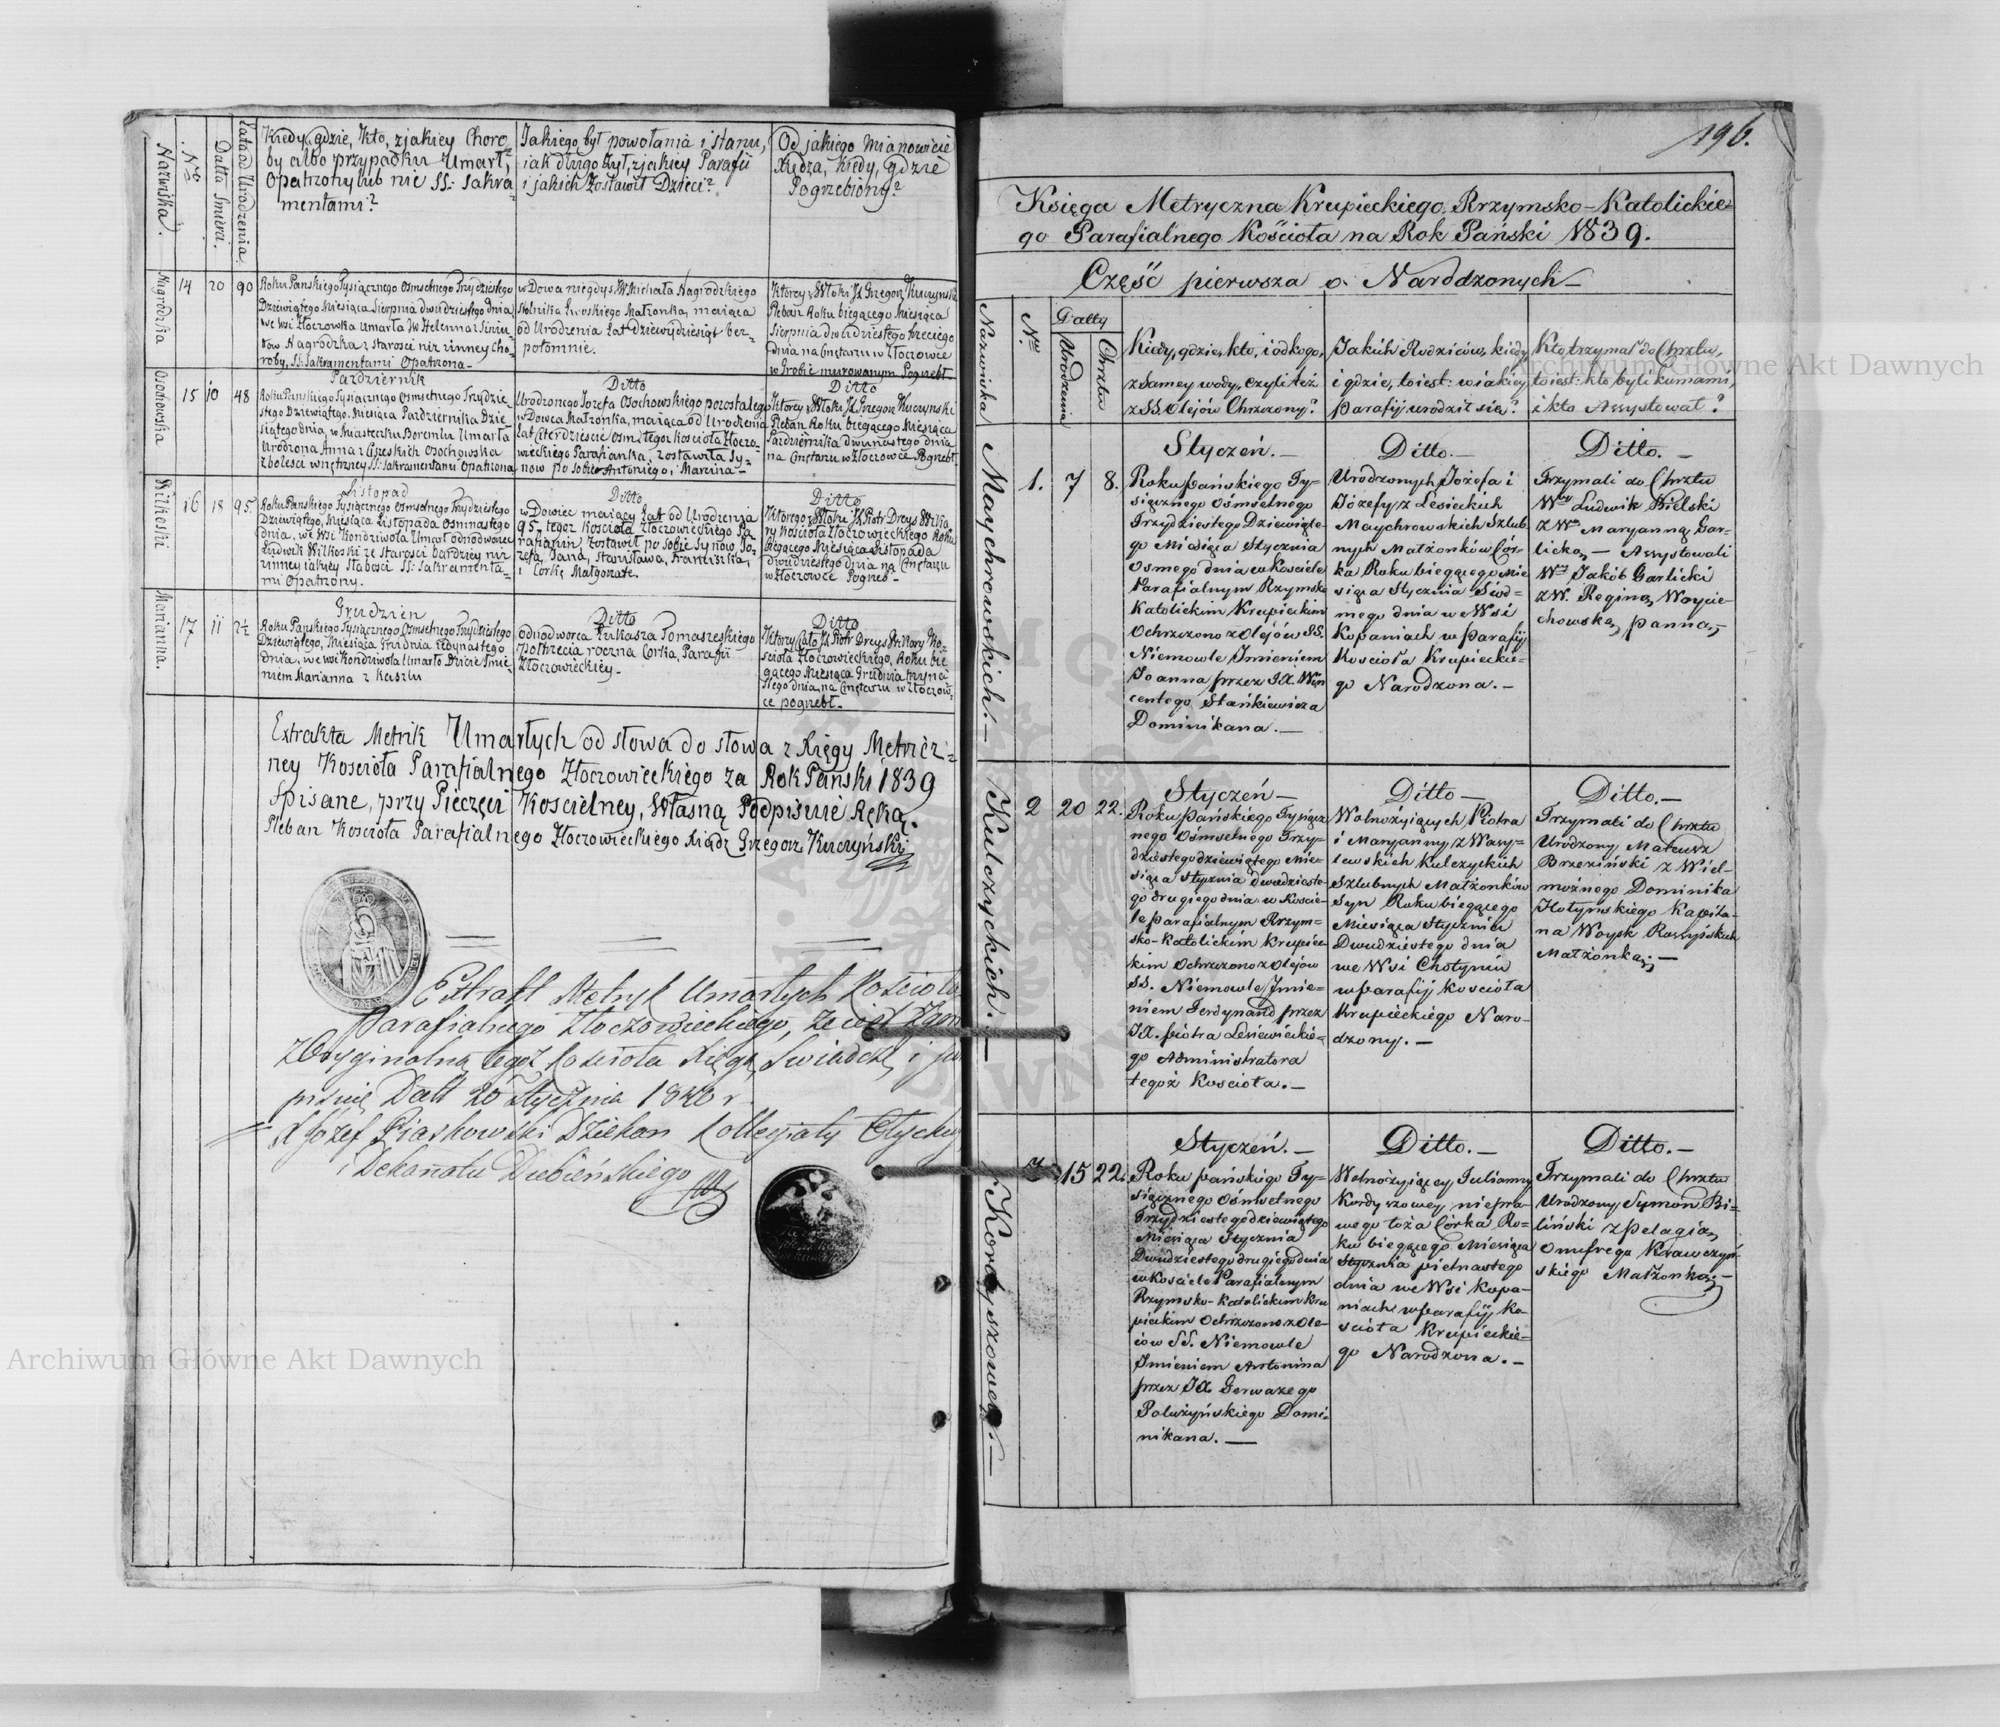 Nazwiska.
Nro
Datta Śmierci.
Lata od Urodzenia
Kiedy, gdzie, kto, z jakiey Choro=
by albo przypadku Umarł,
Opatrzony lub nie SS: Sakra=
mentami?
Jakiego był powołania i stanu,
iak długo żył, z jakiey Parafii
i jakich zostawił Dzieci?
Od jakiego mianowicie
Xiędza, kiedy, gdzie
Pogrzebiony?
Nagrodzka
14 20 90
Roku Panskiego Tysiącznego Osmsetnego Trzydziestego
Dziewiątego Miesiąca Sierpnia dwudziestego dnia
we wsi Złoczowka Umarła JW Helenna z
Nagrodzka z starosci niz inney cho-
roby, SS: Sakramentami Opatrzona-
wDowa niegdys JW Michała Nagrodzkiego
Stolnika Małżonka, maiąca
od Urodzenia Lat Dziewiędziesiąt bez-
potomnie.
Ktorey Zwłoki JX Grzegorz Kuczynski
Pleban Roku biegącego Miesiąca
Sierpnia dwudziestego trzeciego
dnia na Cmętarzu w Złoczowce
w Grobie murowanym Pogrzebł.
Osochowska
15 10 48
Pazdziernik
Roku Panskiego Tysiącznego Osmsetnego Trzydzie-
stego Dziewiątego, Miesiąca Pazdziernika Dzie-
siątego dnia, w Miasteczku Boremlu Umarła
Urodzona Anna z Osochowska
z bolesci wnętrzney SS: Sakramentami Opatrzona
Ditto
Urodzonego Jozefa Osochowskiego pozostałego
wDowca Małżonka, maiąca od Urodzenia
Lat Czterdziescie Osm, tegoż Kosciola Złoczo-
wieckiego Parafianka, zostawiła Sy-
now po sobie Antoniego, Marcina-
Ditto
Ktorey Zwłoki JX Grzegorz Kuczynski
Pleban Roku biegącego Miesiąca
Pazdziernika dwunastego dnia
na Cmętarzu w Złoczowce Pogrzebł.
Wilkoski
16 18 95
Listopad
Roku Panskiego Tysiącznego Osmsetnego Trzydziestego
Dziewiątego, Miesiąca Listopada Osmnastego
dnia, we Wsi Kondziwola Umarł odnodworzec
Ludwik Wilkoski ze Starosci bardziey niz
z inney iakiey słabosci SS: Sakramenta-
mi Opatrzony.
Ditto
wDowiec maiący Lat od Urodzenia
95. tegoz Kosciola Złoczowieckiego Pa-
rafianin zostawił po sobie Synow, Jo-
zefa, Jana, Stanisława, Franciszka,
i Corkę Małgorzate.
Ditto
Ktorego Zwłoki JX Piotr Dreys Wika-
ry Kościoła Złoczowieckiego Roku
biegącego Miesiąca Listopada
dwudziestego dnia na Cmętarzu
w Złoczowce Pogrzeb-
Marianna.
17 11 2½
Grudzien
Roku Panskiego Tysiącznego Osmsetnego Trzydziestego
Dziewiątego, Miesiąca Grudnia iedynastego
dnia, we wsi Kondziwola Umarło Dziecie Imie-
niem Marianna z Kaszlu
Ditto
odnodworca Łukasza Tomaszeskiego
połtrzecia roczna Corka, Parafii
Złoczowieckiey.
Ditto
Ktorey Ciało JX Piotr Dreys Wikary Ko-
scioła Złoczowieckiego, Roku bie
gącego Miesiąca Grudnia trzyna
stego dnia, na Cmętarzu w Złoczow-
ce pogrzebł.
Extrakta Metrik Umarłych od słowa do słowa z Xięgy Metricz-
ney Koscioła Parafialnego Złoczowieckiego za Rok Pański 1839
Spisane, przy Pieczęci Koscielney, Własną Podpisuie Ręką.
Pleban Koscioła Parafialnego Złoczowieckiego Xiądz Grzegorz Kuczyński
Extrakt Metryk Umarłych Kościoła
Parafialnego Złoczowieckiego, że iest
z Oryginalną tegoż kościoła Xięgą, Świadczę i
Datt 20 Stycznia 1840 r.
X Józef Piaskowski Dziekan Kollegiaty
i Dekanatu Dubieńskiego
196.
Księga Metryczna Krupieckiego Rzymsko-Katolickie=
go Parafialnego Kościoła na Rok Pański 1839.
Część pierwsza o Narodzonych
Nazwiska
Nro
Datty
Urodzenia
Chrztu
Kiedy, gdzie, kto, i od kogo,
z Samey wody, czyli też
z SS. Olejów Chrzczony?
Jakich Rodziców, kiedy
i gdzie, to iest: w iakiey
Parafij urodził się?
Kto trzymał do Chrztu,
to iest: kto byli kumami,
i kto Assystował?
Maychrowskich.
1. 7 8.
Styczeń.
Roku Pańskiego Ty=
siącznego Ośmsetnego
Trzydziestego Dziewiąte=
go Miesiąca Stycznia
Osmego dnia w Kościele
Parafialnym Rzymsko
Katolickim Krupieckim
Ochrzczono z Olejów SS.
Niemowle Imieniem
Joanna przez JX. Win
centego Stańkiewicza
Dominikana.
Ditto.
Urodzonych Józefa i
Józefy z Lesieckich
Maychrowskich Szlub=
nych Małżonków Cór=
ka Roku biegącego Mie
siąca Stycznia Siód=
mego dnia we Wsi
Kopaniach w Parafij
Kościoła Krupieckie=
go Narodzona.
Ditto.
Trzymali do Chrztu
Wny Ludwik Bielski
z Wą Maryanną Gar=
licką, Assystowali
Wny Jakób Garlicki
z W. Reginą Woycie=
chowską, panną,
Kulczyckich.
2 20 22.
Styczeń
Roku Pańskiego Tysiącz
nego Ośmsetnego Trzy=
dziestego dziewiątego Mie=
siąca Stycznia Dwudzieste=
go drugiego dnia w Koście=
le parafialnym Rzym=
sko-Katolickim Krupiec
kim Ochrzczono z Olejów
SS. Niemowle Imie=
niem Ferdynand przez
JX. Piotra Lesiewickie=
go Administratora
tegoż Kościoła.
Ditto
Wolnożyjących Piotra
i Maryanny z Wasy=
lewskich Kulczyckich
Szlubnych Małżonków
Syn Roku biegącego
Miesiąca Stycznia
Dwudziestego dnia
we Wsi Chotyniu
w parafij Kościoła
Krupieckiego Naro=
dzony.
Ditto.
Trzymali do Chrztu
Urodzony Mateusz
Brzeziński z Wiel=
możnego Dominika
Hotyńskiego Kapita=
na Woysk Rossyiskich
Małżonką;
Kordyszowey.
3 15 22.
Styczeń.
Roku Pańskiego Ty=
siącznego Ośmsetnego
Trzydziestego dziewiątego
Miesiąca Stycznia
Dwudziestego drugiego dnia
w Kościele Parafialnym
Rzymsko-Katolickim Kru
pieckim Ochrzczono z Ole=
jów SS. Niemowle
Imieniem Antonina
przez JX Gerwazego
Połużyńskiego Domi=
nikana.
Ditto.
Wolnożyjącey Julianny
Kordyszowey niepra=
wego łoża Córka Ro=
ku biegącego Miesiąca
Stycznia pietnastego
dnia we Wsi Kopa=
niach w parafij Ko=
ścioła Krupieckie=
go Narodzona.
Ditto.
Trzymali do Chrztu
Urodzony Symon Bi=
liński z Pelagią
Onufrego Krawczyń=
skiego Małżonką;
Archiwum Główne Akt Dawnych
Archiwum Główne Akt Dawnych